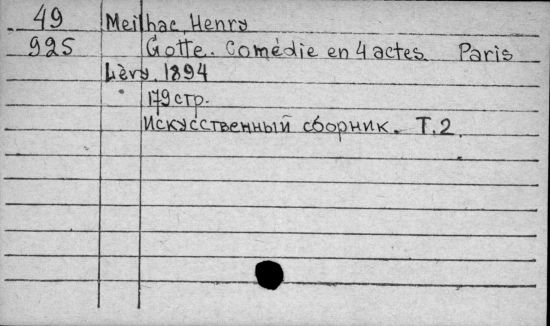 49 Meilhac Henry
925 Gotte. Comédie en 4 actes. Paris
Lèvy, 1894
179 стр.
Искусственный сборник. Т.2.